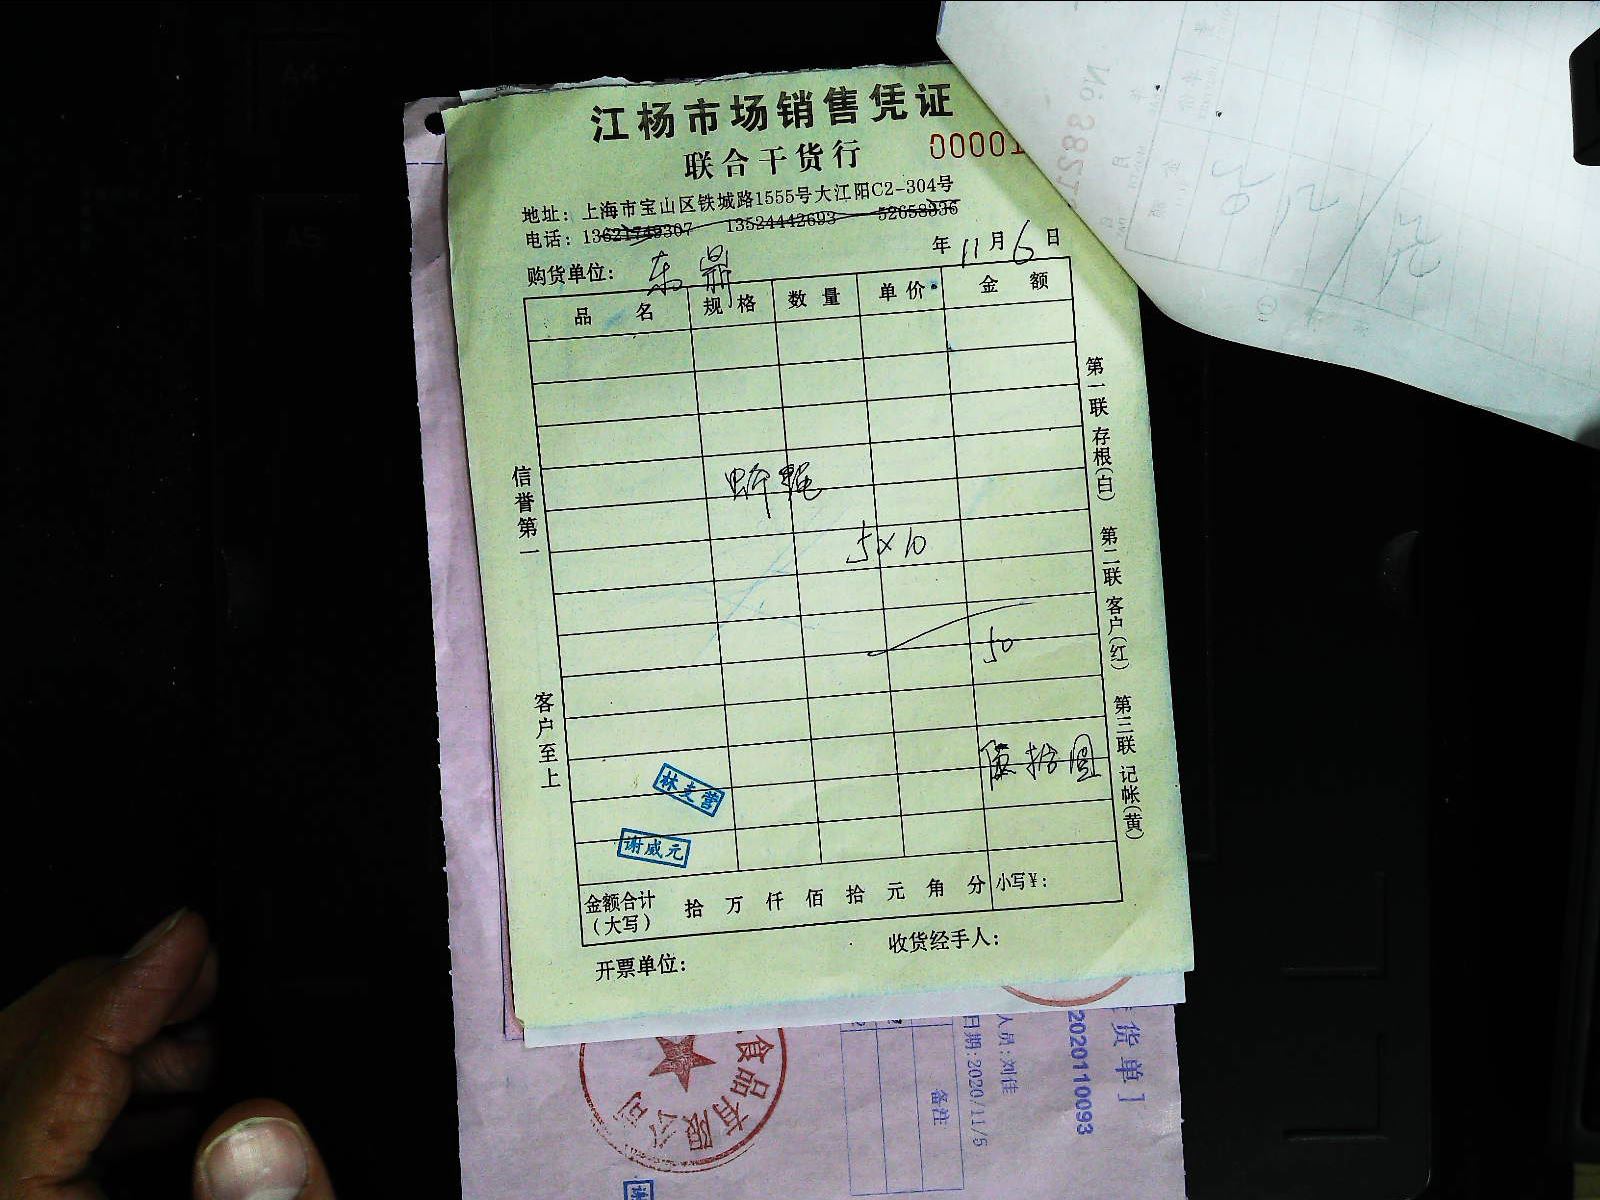 江杨市场销售凭证
联合干货行
00001
地址：上海市宝山区铁城路1555号大江阳C2-304号
电话：13621749307 13524442693 52658936
年 11 月 6 日
购货单位：东鼎
品名 规格 数量 单价 金额
5×10
50
伍拾圆
林支营
谢威元
金额合计（大写） 拾 万 仟 佰 拾 元 角 分 小写¥：
收货经手人：
开票单位：
信誉第一
客户至上
第一联 存根(白)
第二联 客户(红)
第三联 记帐(黄)
食品有限公司
货单]
2020110093
人员:刘佳
日期:2020/11/5
备注